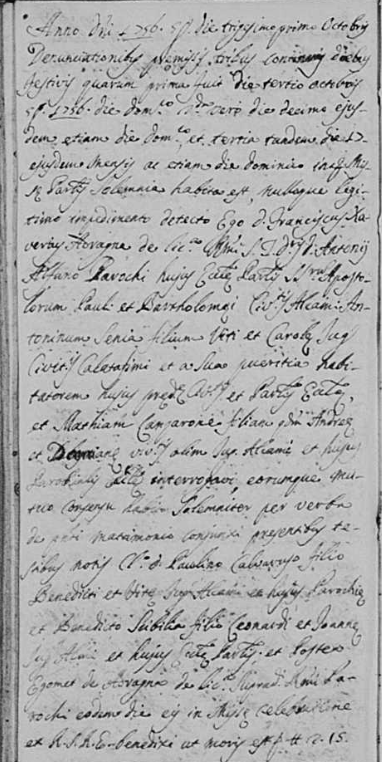 Anno Dni 1756. 5ᵉ Ind. die trigesimo primo Octobris
Denunciationibq premissis tribus continuis diebq
festivis quarum prima fuit die tertio octobris
1756. die domco 2da vero die decimo ejus-
dem etiam die domco, et tertia tandem die 17
ejusdem Mensis ac etiam die dominico inter Mis-
Partis solemnia habita est, nulloque legi-
timo impedimento detecto Ego d. Franciscus Xa-
verius Aovagna de licca Rmi S.T.D. D. Antonij
Albano Parochi hujus Ecclę Partis SS. Aposto-
lorum Pauli et Bartholomęi Civtis Alcami An-
toninum Senia filium Viti et Carolę Jug
Civitis Calatafimi et a sua pueritia habi-
tatorem hujus predę Civtis et Partis Ecclę,
et Mathiam Canzarone filiam qdm Andreę
et Damianę viv olim Jug Alcami et hujus
Parochialis Ecclę interrogavi, eorumque mu-
tuo consensu habito Solemniter per verba
de pnti matrimonio conjunxi presentibq te-
stibus notis Cl. D. Paulino Calvaruso filio
Benedicti et Vitę Jug Alcami ex hujus Parochię
et Benedicto Stabile filio Leonardi et Joannę
Jug Alcami et hujus Ecclę Partis; et Postea
Egomet de Aovagna de licca supradi Rmi Pa-
rochi eodem die eis in Missę celebratione
et R.S.R.E. benedixi ut moris est p. tt. 15.